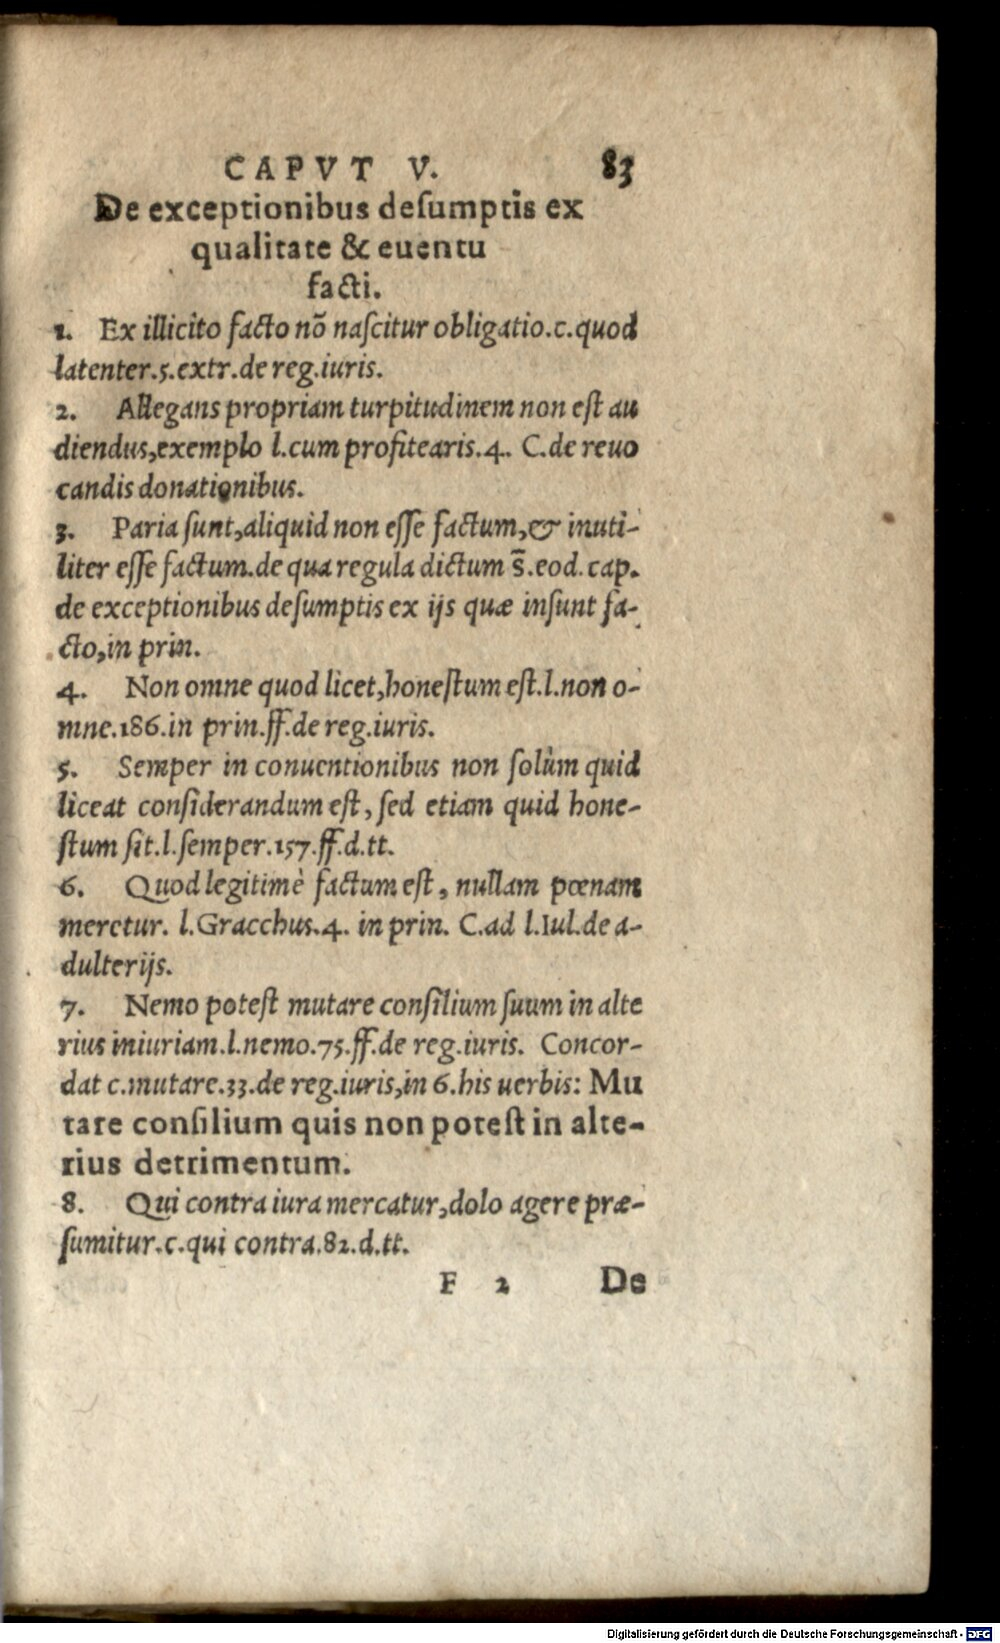 CAPVT V. 83
De exceptionibus desumptis ex
qualitate & euentu
facti.
1. Ex illicito facto nõ nascitur obligatio.c.quod
latenter.5.extr.de reg.iuris.
2. Allegans propriam turpitudinem non est au
diendus,exemplo l.cum profitearis.4. C.de reuo
candis donationibus.
3. Paria sunt,aliquid non esse factum,& inuti-
liter esse factum.de qua regula dictum s̄.eod.cap.
de exceptionibus desumptis ex ijs quæ insunt fa-
cto,in prin.
4. Non omne quod licet,honestum est.l.non o-
mne.186.in prin.ff.de reg.iuris.
5. Semper in conuentionibus non solùm quid
liceat considerandum est, sed etiam quid hone-
stum sit.l.semper.157.ff.d.tt.
6. Quod legitimè factum est, nullam pœnam
meretur. l.Gracchus.4. in prin. C.ad l.Iul.de a-
dulterijs.
7. Nemo potest mutare consilium suum in alte
rius iniuriam.l.nemo.75.ff.de reg.iuris. Concor-
dat c.mutare.33.de reg.iuris,in 6.his uerbis: Mu
tare consilium quis non potest in alte-
rius detrimentum.
8. Qui contra iura mercatur,dolo agere præ-
sumitur.c.qui contra.82.d.tt.
F 2 De
Digitalisierung gefördert durch die Deutsche Forschungsgemeinschaft - DFG